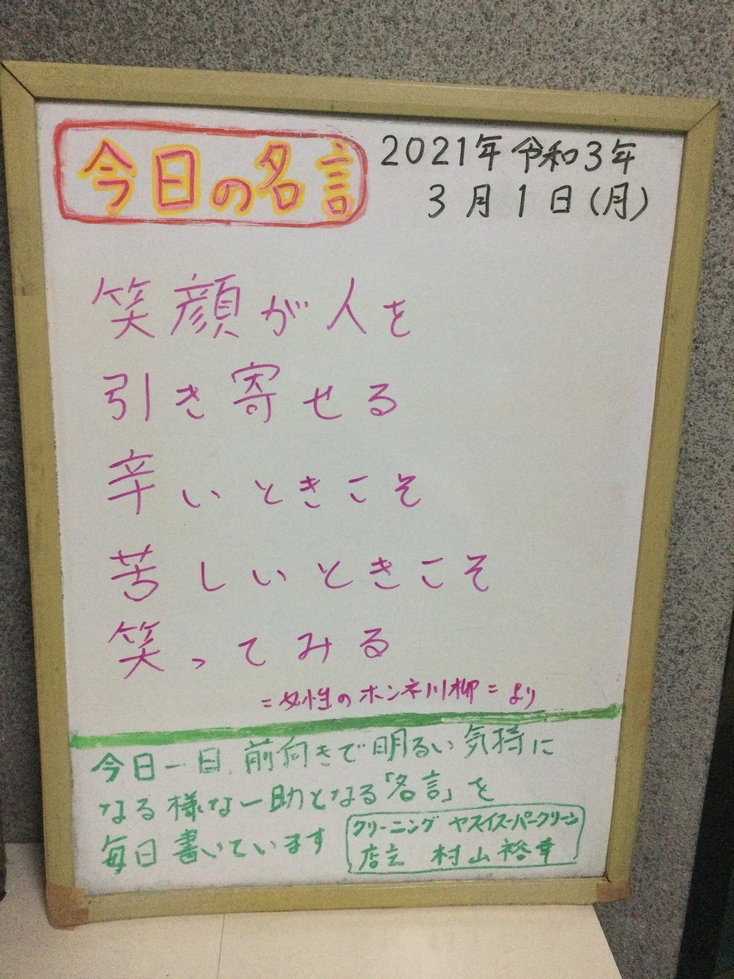 今日の名言
2021年 令和3年
3月1日(月)
笑顔が人を
引き寄せる
辛いときこそ
苦しいときこそ
笑ってみる
=女性のホンネ川柳=より
今日一日、前向きで明るい気持に
なる様な一助となる「名言」を
毎日書いています
クリーニング ヤスイスーパークリーン
店主 村山裕幸